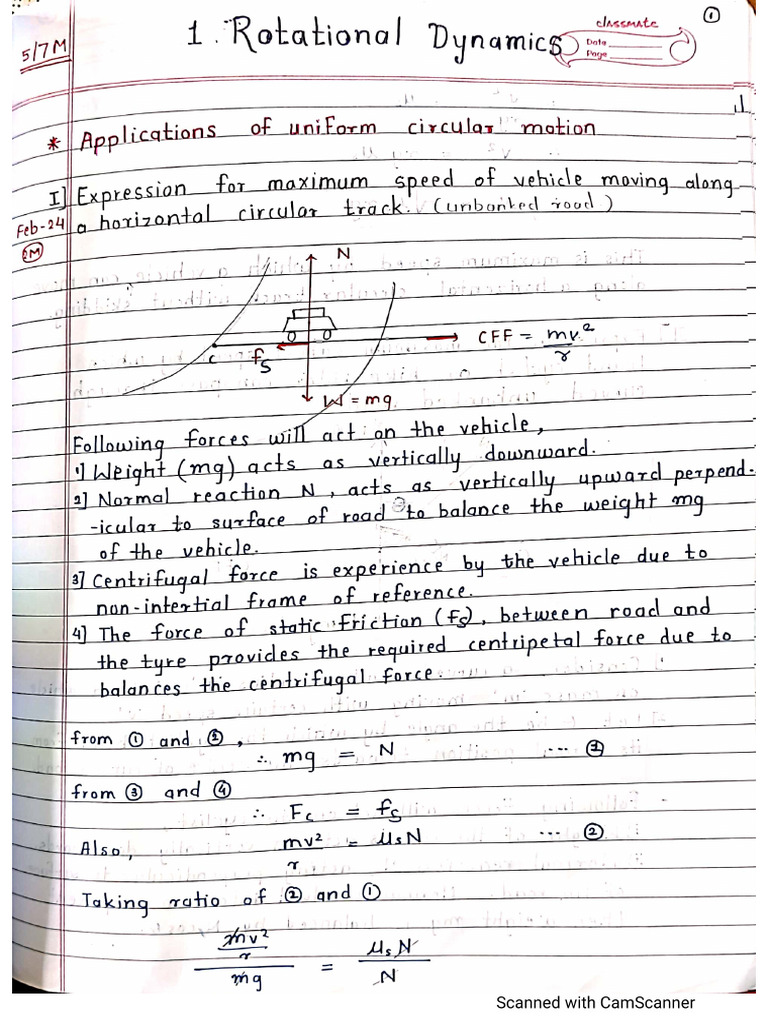 classmate
Date
Page
①
5/7M
1. Rotational Dynamics
* Applications of uniform circular motion
I] Expression for maximum speed of vehicle moving along
Feb-24
a horizontal circular track. (unbanked road)
2M
N
c
fs
CFF = mv²/r
W = mg
Following forces will act on the vehicle,
1] Weight (mg) acts as vertically downward.
2] Normal reaction N, acts as vertically upward perpend-
-icular to surface of road to balance the weight mg
of the vehicle.
3] Centrifugal force is experience by the vehicle due to
non-intertial frame of reference.
4] The force of static friction (fs), between road and
the tyre provides the required centripetal force due to
balances the centrifugal force.
from ① and ②,
∴ mg = N ... ①
from ③ and ④
∴ Fc = fs
Also, mv²/r = μsN ... ②
Taking ratio of ② and ①
(mv²/r)/mg = μsN/N
Scanned with CamScanner